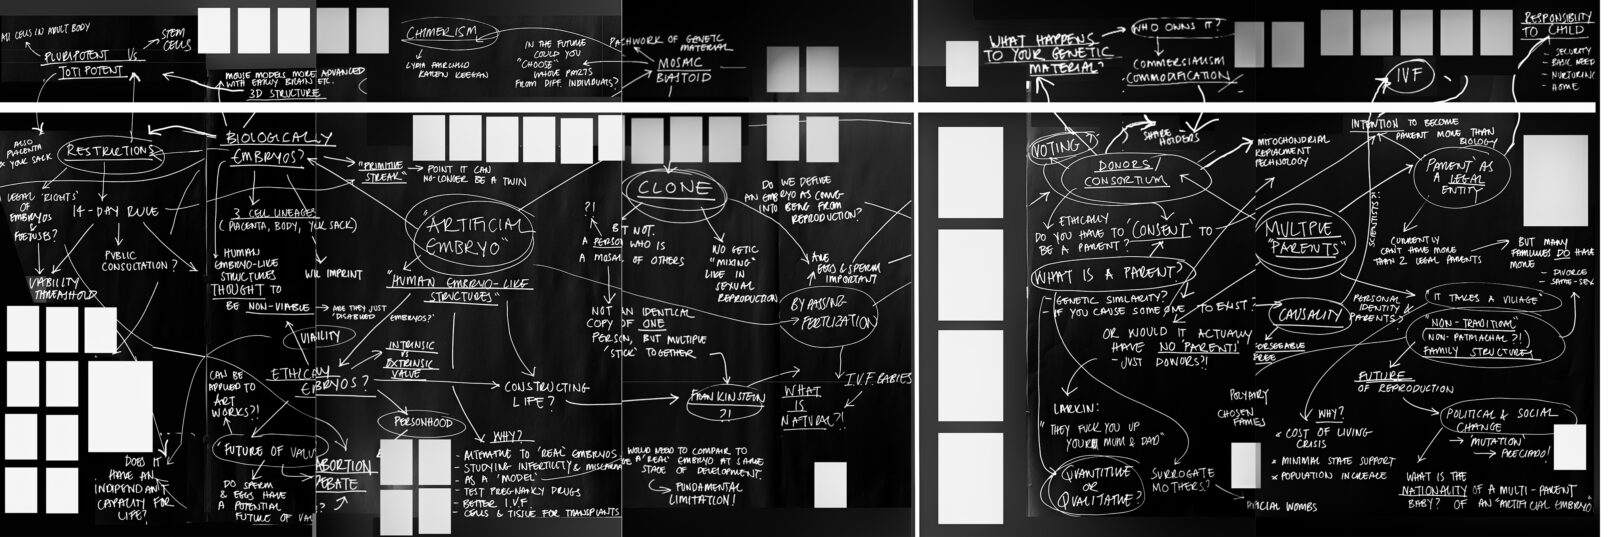 STEM
CELLS
PLURIPOTENT VS
TOTIPOTENT
MOUSE MODELS MORE ADVANCED
WITH EARLY BRAIN ETC.
3D STRUCTURE
CHIMERISM
LYDIA FAIRCHILD
KAREN KEEGAN
IN THE FUTURE
COULD YOU
"CHOOSE"
WHOLE PARTS
FROM DIFF. INDIVIDUALS?
PATCHWORK OF GENETIC
MATERIAL
MOSAIC
BLASTOID
WHAT HAPPENS
TO YOUR GENETIC
MATERIAL?
WHO OWNS IT?
COMMERSIALISM
COMMODIFICATION
IVF
RESPONSIBITY
TO CHILD
- SECURITY
- BASIC NEED
- NURTURING
- HOME
ALSO
PLACENTA
& YOLK SACK
RESTRICTIONS
LEGAL 'RIGHTS'
OF
EMBRYOS
&
FOETUSES?
14-DAY RULE
PUBLIC
CONSULTATION?
VIABILITY
THREASHOLD
BIOLOGICALLY
EMBRYOS?
"PRIMITIVE
STREAK"
POINT IT CAN
NO-LONGER BE A TWIN
3 CELL LINEAGES
(PLACENTA, BODY, YOLK SACK)
HUMAN
EMBRYO-LIKE
STRUCTURES
THOUGHT TO
BE NON-VIABLE
ARE THEY JUST
'DISABLED
EMBRYOS?'
WILL IMPRINT
"ARTIFICIAL
EMBRYO"
"HUMAN EMBRYO-LIKE
STRUCTURES"
VIABILITY
INTRINSIC
VS
EXTRINSIC
VALUE
ETHICALLY
EMBRYOS?
CAN BE
APPLIED TO
ART
WORKS?!
PERSONHOOD
"FUTURE OF VALU
ABORTION
DEBATE
DOES IT
HAVE AN
INDIPENDANT
CAPACITY FOR
LIFE?
DO SPERM
& EGGS HAVE
A POTENTIAL
FUTURE OF VAL
CONSTRUCTING
LIFE?
WHY?
- ALTERNATIVE TO 'REAL' EMBRYOS
- STUDYING INFERTILITY & MISCARRIAGE
- AS A 'MODEL'
- TEST PREGNANCY DRUGS
- BETTER I.V.F.
- CELLS & TISSUE FOR TRANSPLANTS
WOULD NEED TO COMPARE TO
A 'REAL' EMBRYO AT SAME
STAGE OF DEVELOPMENT.
FUNDAMENTAL
LIMITATION!
CLONE
?!
BUT NOT.
A PERSON WHO IS
A MOSAIC OF OTHERS
NOT AN IDENTICAL
COPY OF ONE
PERSON, BUT MULTIPLE
'STUCK' TOGETHER
NO GETIC
"MIXING"
LIKE IN
SEXUAL
REPRODUCTION
DO WE DEFINE
AN EMBRYO AS COMING
INTO BEING FROM
REPRODUCTION?
ARE
EGGS & SPERM
IMPORTANT?
BYPASSING
FERTLIZATION
FRANKINSTEIN
?!
WHAT
IS
NATURAL?!
I.V.F. BABIES
VOTING?
SHARE
HOLDERS
DONORS/
CONSORTIUM
MITOCHONDRIAL
REPLACMENT
TECHNOLOGY
ETHICALLY
DO YOU HAVE TO 'CONSENT' TO
BE A PARENT?
WHAT IS A PARENT?
- GENETIC SIMILARITY?
- IF YOU CAUSE SOMEONE TO EXIST?
OR WOULD IT ACTUALLY
HAVE NO 'PARENTS'
- JUST DONORS?!
LARKIN:
"THEY FUCK YOU UP
YOUR MUM & DAD"
QUANTITIVE
OR
QUALITATIVE?
SURROGATE
MOTHERS?
MULTIPLE
"PARENTS"
SCIENTISTS?!
INTENTION TO BECOME
PARENT MORE THAN
BIOLOGY
PARENT AS
A LEGAL
ENTITY
CURRENTLY
CANT HAVE MORE
THAN 2 LEGAL PARENTS
BUT MANY
FAMILIES DO HAVE
MORE
- DIVORCE
- SAME-SEX
CAUSALITY
PERSONAL
IDENTITY
PARENTS?
"IT TAKES A VILLAGE"
"NON-TRADITIONAL"
(NON-PATRIACHAL?!)
FAMILY STRUCTURES
FUTURE
OF REPRODUCTION
CHOSEN
WHY?
* COST OF LIVING
CRISIS
* MINIMAL STATE SUPPORT
* POPULATION INCREASE
POLITICAL & SOCIAL
CHANGE
'MUTATION'
PRECIADO!
WHAT IS THE
NATIONALITY OF A MULTI-PARENT
BABY? OF AN "ARTIFICIAL EMBRYO"
WOMBS